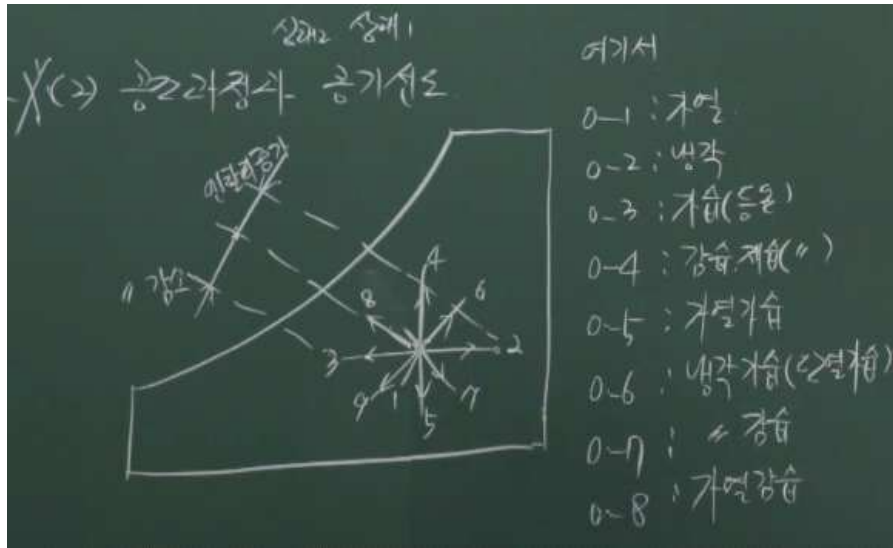 상태2 상태1
(2) 공조과정과 공기선도
엔탈피증가
〃 감소
4
8
6
3
2
9
1
5
7
여기서
0-1 : 가열
0-2 : 냉각
0-3 : 가습(등온)
0-4 : 감습.제습(〃)
0-5 : 가열가습
0-6 : 냉각가습(단열가습)
0-7 : 〃 감습
0-8 : 가열감습